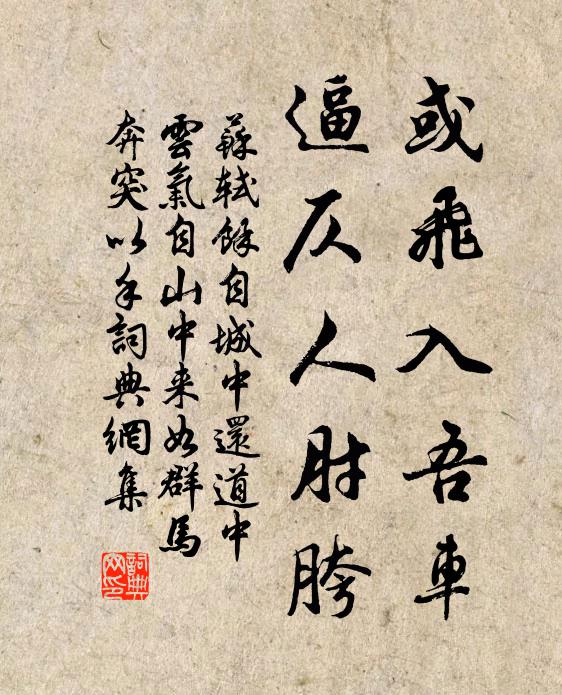 或飛入吾車
逼仄人肘胯
蘇軾餘自城中還道中
雲氣自山中来如群馬
奔突以手詞典網集
詞典網印